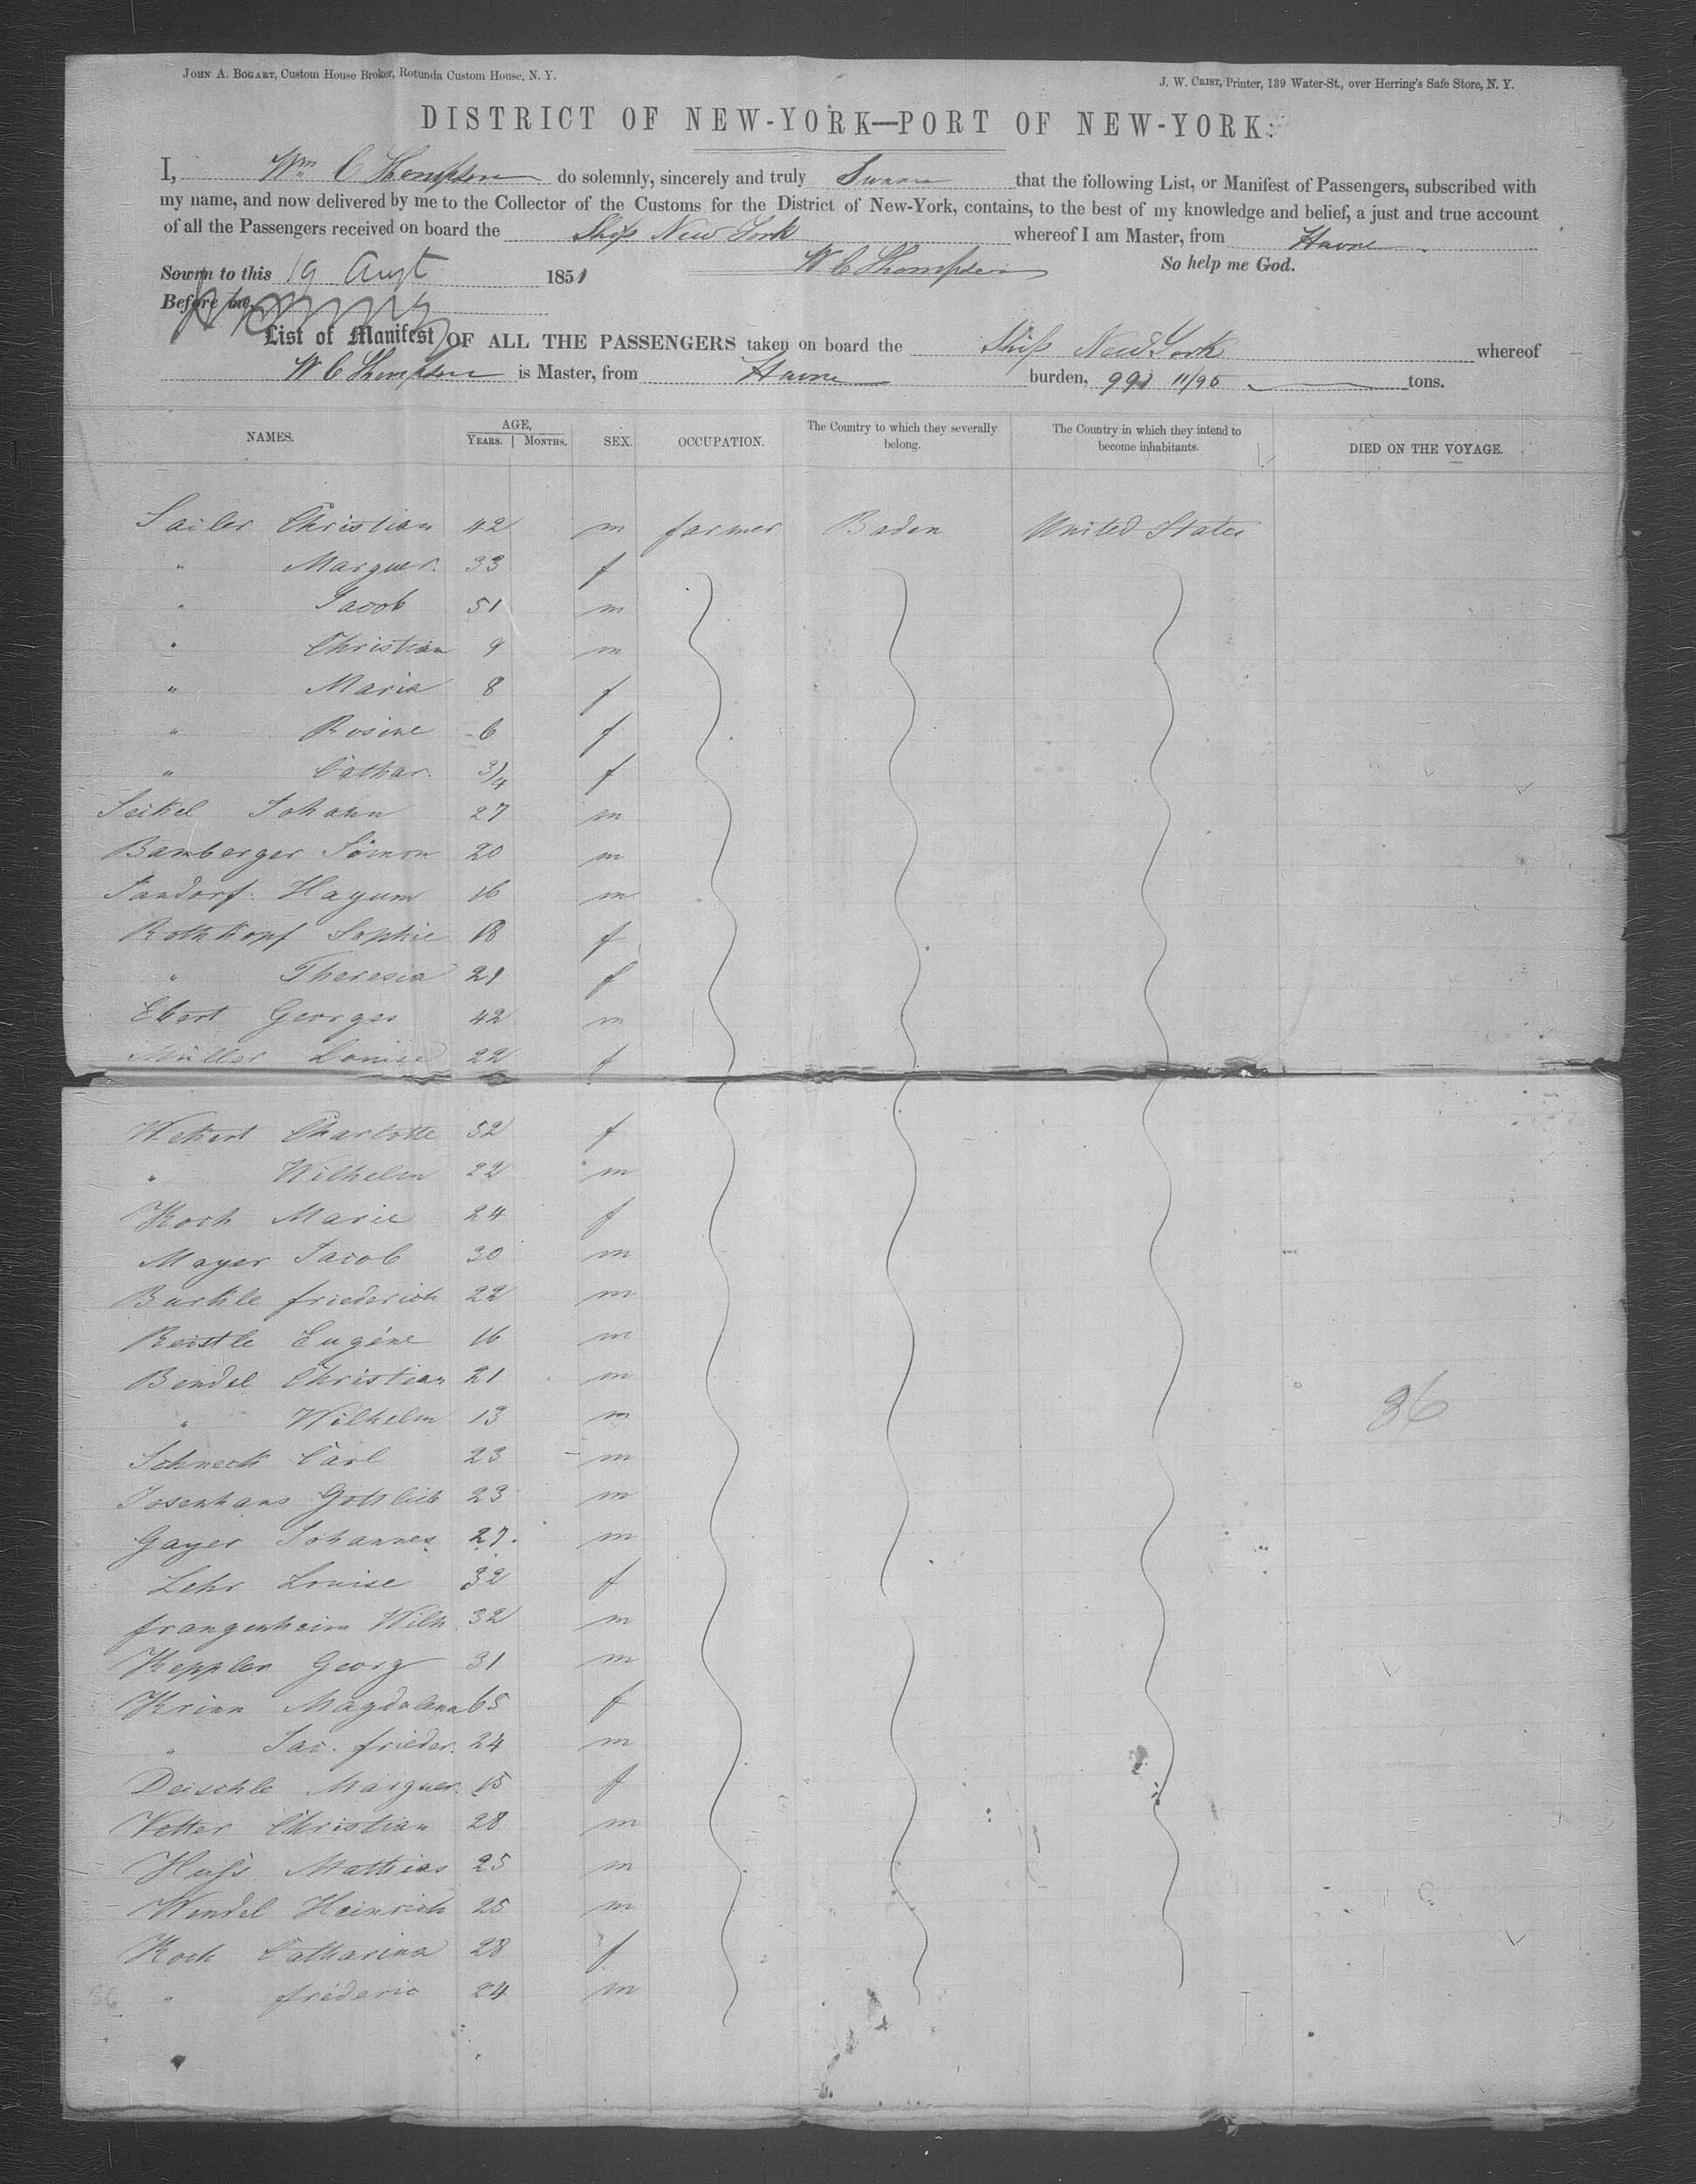 JOHN A. BOGART, Custom House Broker, Rotunda Custom House, N. Y.
J. W. CRIST, Printer, 139 Water-St., over Herring's Safe Store, N. Y.
DISTRICT OF NEW-YORK—PORT OF NEW-YORK.
I, Wm C Thompson do solemnly, sincerely and truly Swear that the following List, or Manifest of Passengers, subscribed with
my name, and now delivered by me to the Collector of the Customs for the District of New-York, contains, to the best of my knowledge and belief, a just and true account
of all the Passengers received on board the Ship New York whereof I am Master, from Havre
Sowrn to this 19 Augt 1851 W C Thompson So help me God.
Before me,
List of Manifest OF ALL THE PASSENGERS taken on board the Ship New York whereof
W C Thompson is Master, from Havre burden, 991 11/95 tons.
NAMES. AGE, YEARS. MONTHS. SEX. OCCUPATION. The Country to which they severally belong. The Country in which they intend to become inhabitants. DIED ON THE VOYAGE.
Sailer Christian 42 m farmer Baden United States
" Marguer. 33 f
" Jacob 51 m
" Christian 9 m
" Maria 8 f
" Rosine 6 f
" Cathar. 3/4 f
Seikel Johann 27 m
Bamberger Simon 20 m
Jandorf Hayum 16 m
Rothkopf Sophie 18 f
" Theresia 21 f
Ebert Georges 42 m
Müller Louise 22 f
Wekert Charlotte 52 f
" Wilhelm 22 m
Koch Marie 24 f
Mayer Jacob 30 m
Burkle friederich 22 m
Reistle Eugéne 16 m
Bendel Christian 21 m
" Wilhelm 13 m
36
Schneck Carl 23 m
Josenhans Gottlieb 23 m
Gayer Johannes 27. m
Lehr Louise 32 f
frangenheim Wilh. 32 m
Keppler Georg 31 m
Krinn Magdalena 65 f
" Jac. frieder. 24 m
Deischle Marguer. 15 f
Vetter Christian 28 m
Huss Mathias 25 m
Wendel Heinrich 25 m
Koch Catharina 28 f
36 " fréderic 24 m